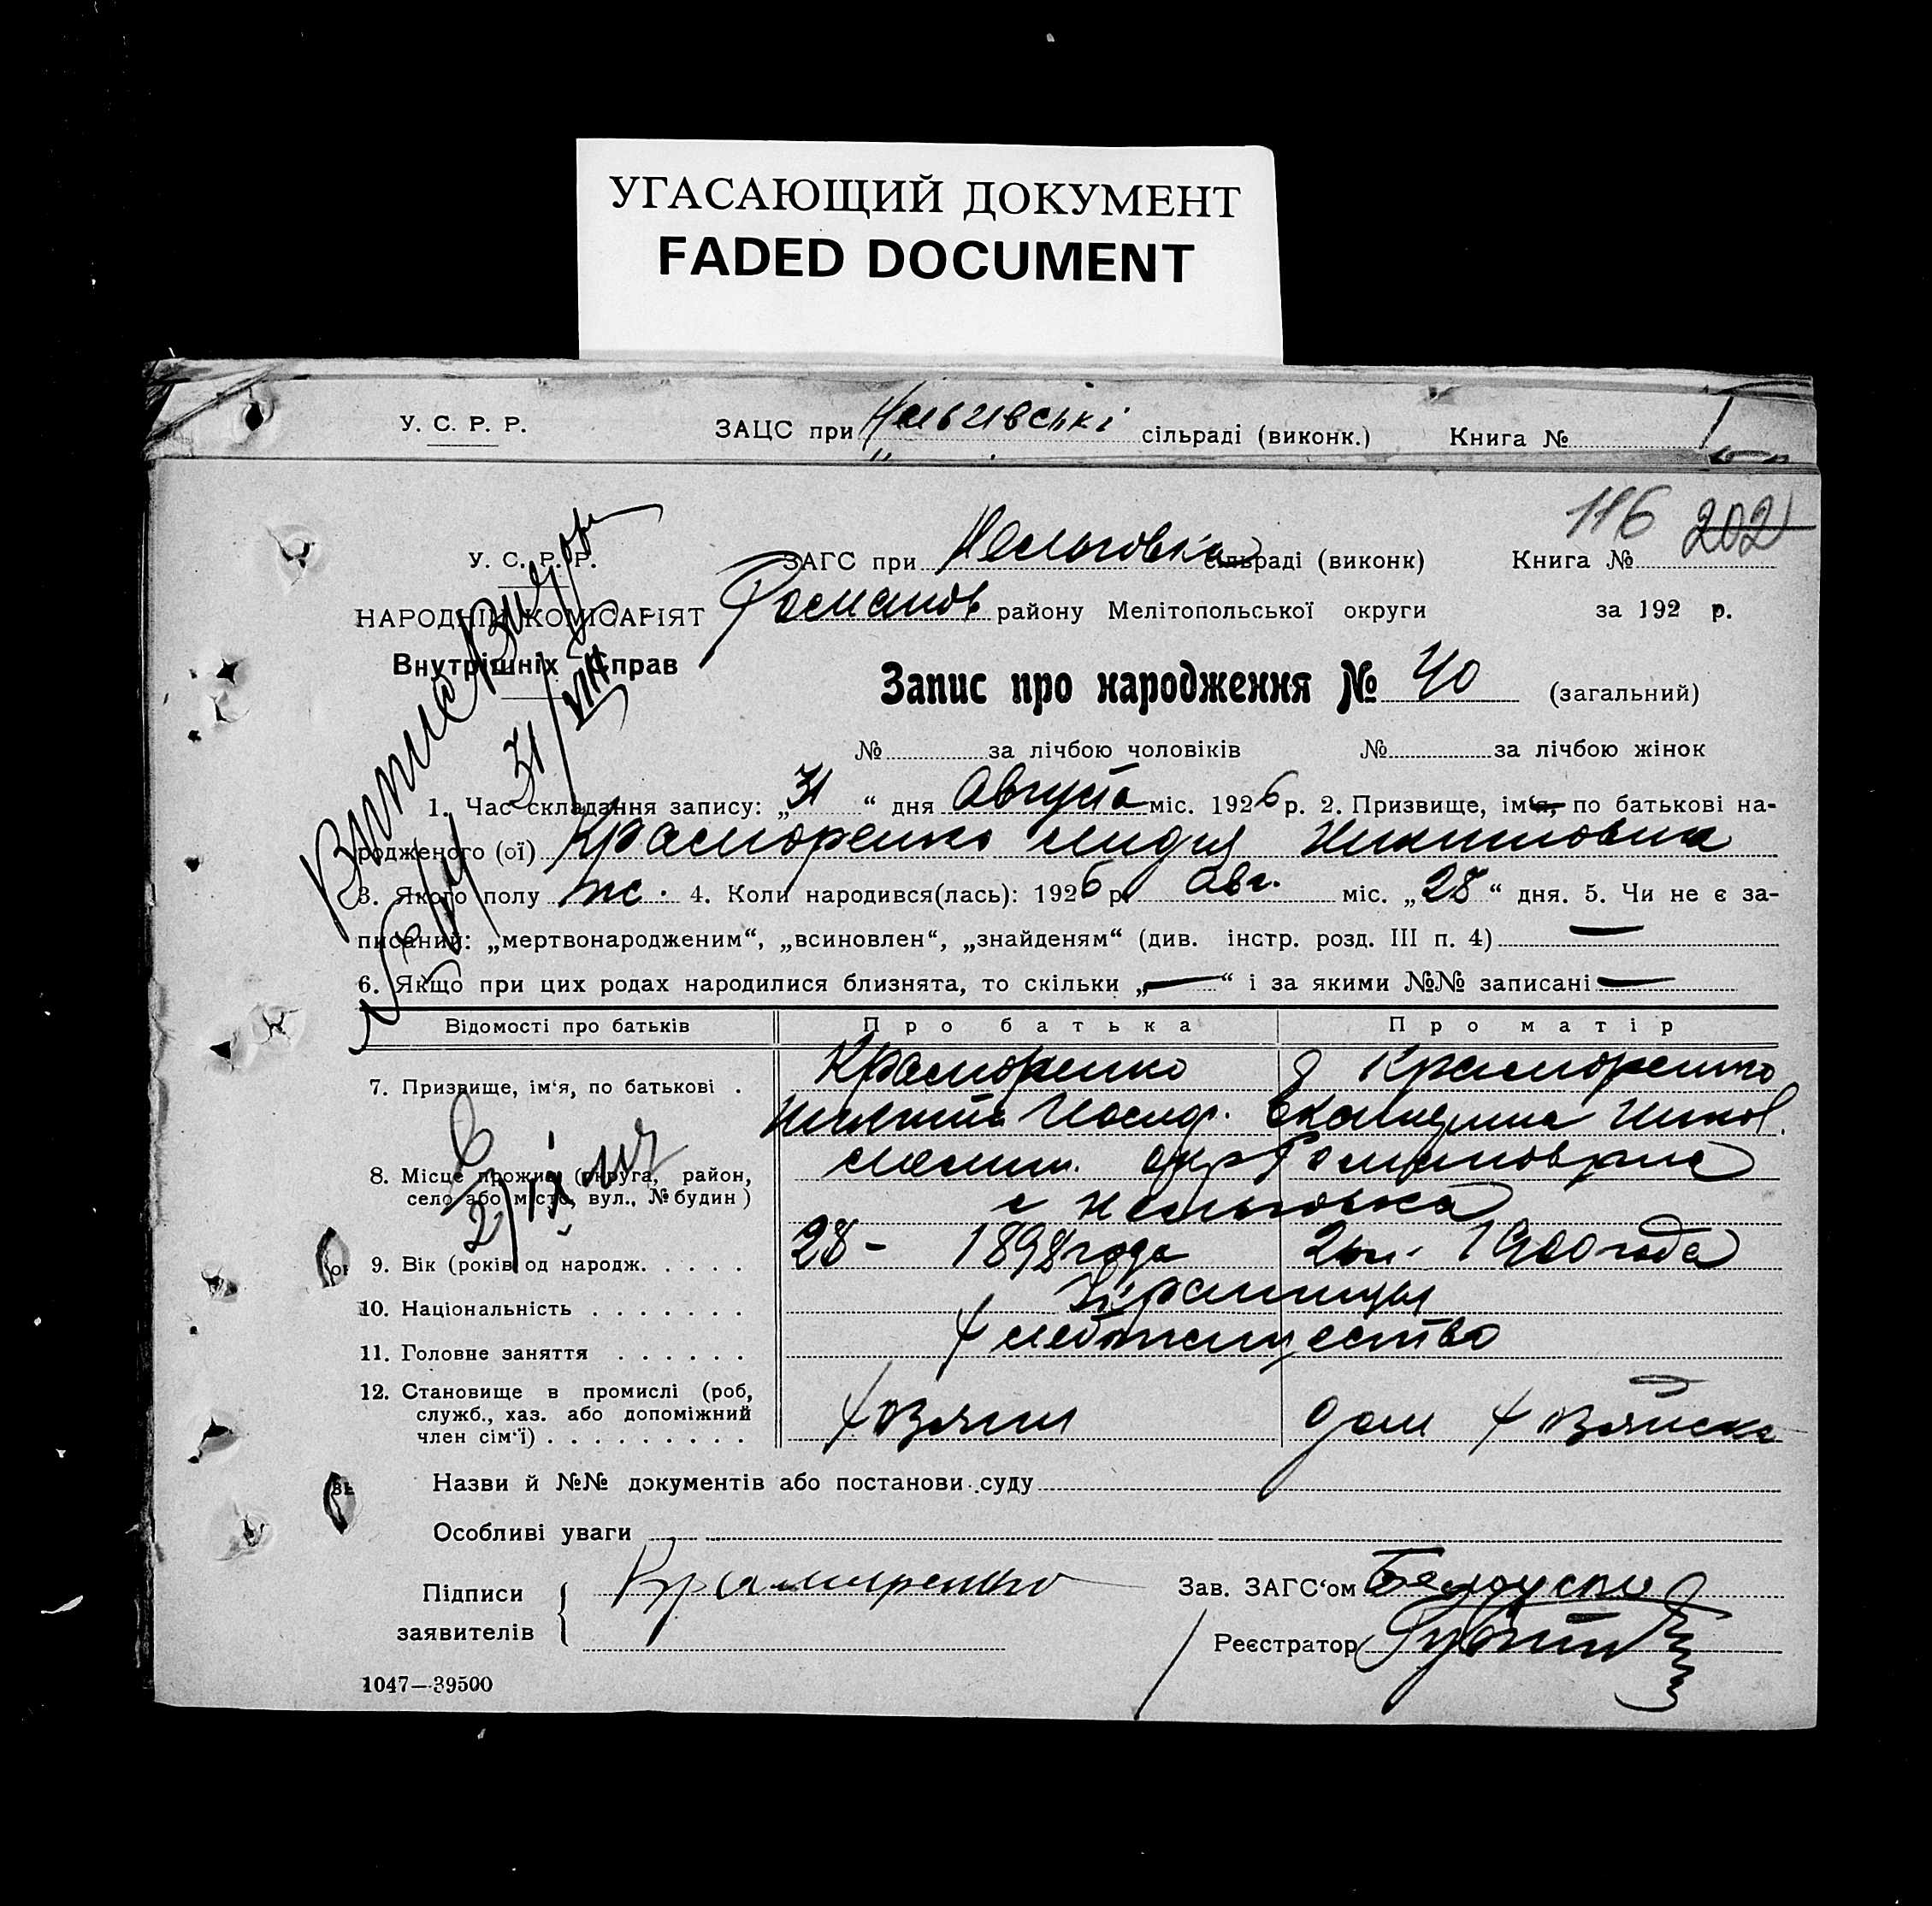 УГАСАЮЩИЙ ДОКУМЕНТ
FADED DOCUMENT
У. С. Р. Р. ЗАЦС при сільраді (виконк.) Книга №
116 202
У. С. Р. Р. ЗАГС при Нельговка сільраді (виконк) Книга №
НАРОДНІЙ КОМІСАРІЯТ Романов району Мелітопольської округи за 192 р.
Внутрішніх Справ
Запис про народження № 40 (загальний)
31/VIII
№ за лічбою чоловіків № за лічбою жінок
1. Час складання запису: „31“ дня Августа міс. 1926 р. 2. Призвище, ім‘я, по батькові на-
родженого (ої) Краморенко Лидия Никитовна
3. Якого полу ж. 4. Коли народився(лась): 1926 р. Авг. міс. „28“ дня. 5. Чи не є за-
писаний: „мертвонародженим“, „всиновлен“, „знайденям“ (див. інстр. розд. III п. 4) —
6. Якщо при цих родах народилися близнята, то скільки „—“ і за якими №№ записані —
Відомості про батьків Про батька Про матір
7. Призвище, ім‘я, по батькові . Краморенко Краморенко
Никита Иосиф. Екатерина Никол.
8. Місце прожив. (округа, район, мелит. окр Романовский
село або місто, вул., № будин ) с Нельговка
9. Вік (років од народж. . . . . 28 - 1898 года 1900 года
10. Національність . . . . . . . Украинцы
11. Головне заняття . . . . . . Хлебопашество
12. Становище в промислі (роб,
служб., хаз. або допоміжний Хозяин дом Хозяйска
член сім‘ї) . . . . . . . . .
Назви й №№ документів або постанови суду
Особливі уваги
Підписи Краморенко Зав. ЗАГС‘ом
заявителів Реєстратор
1047—39500